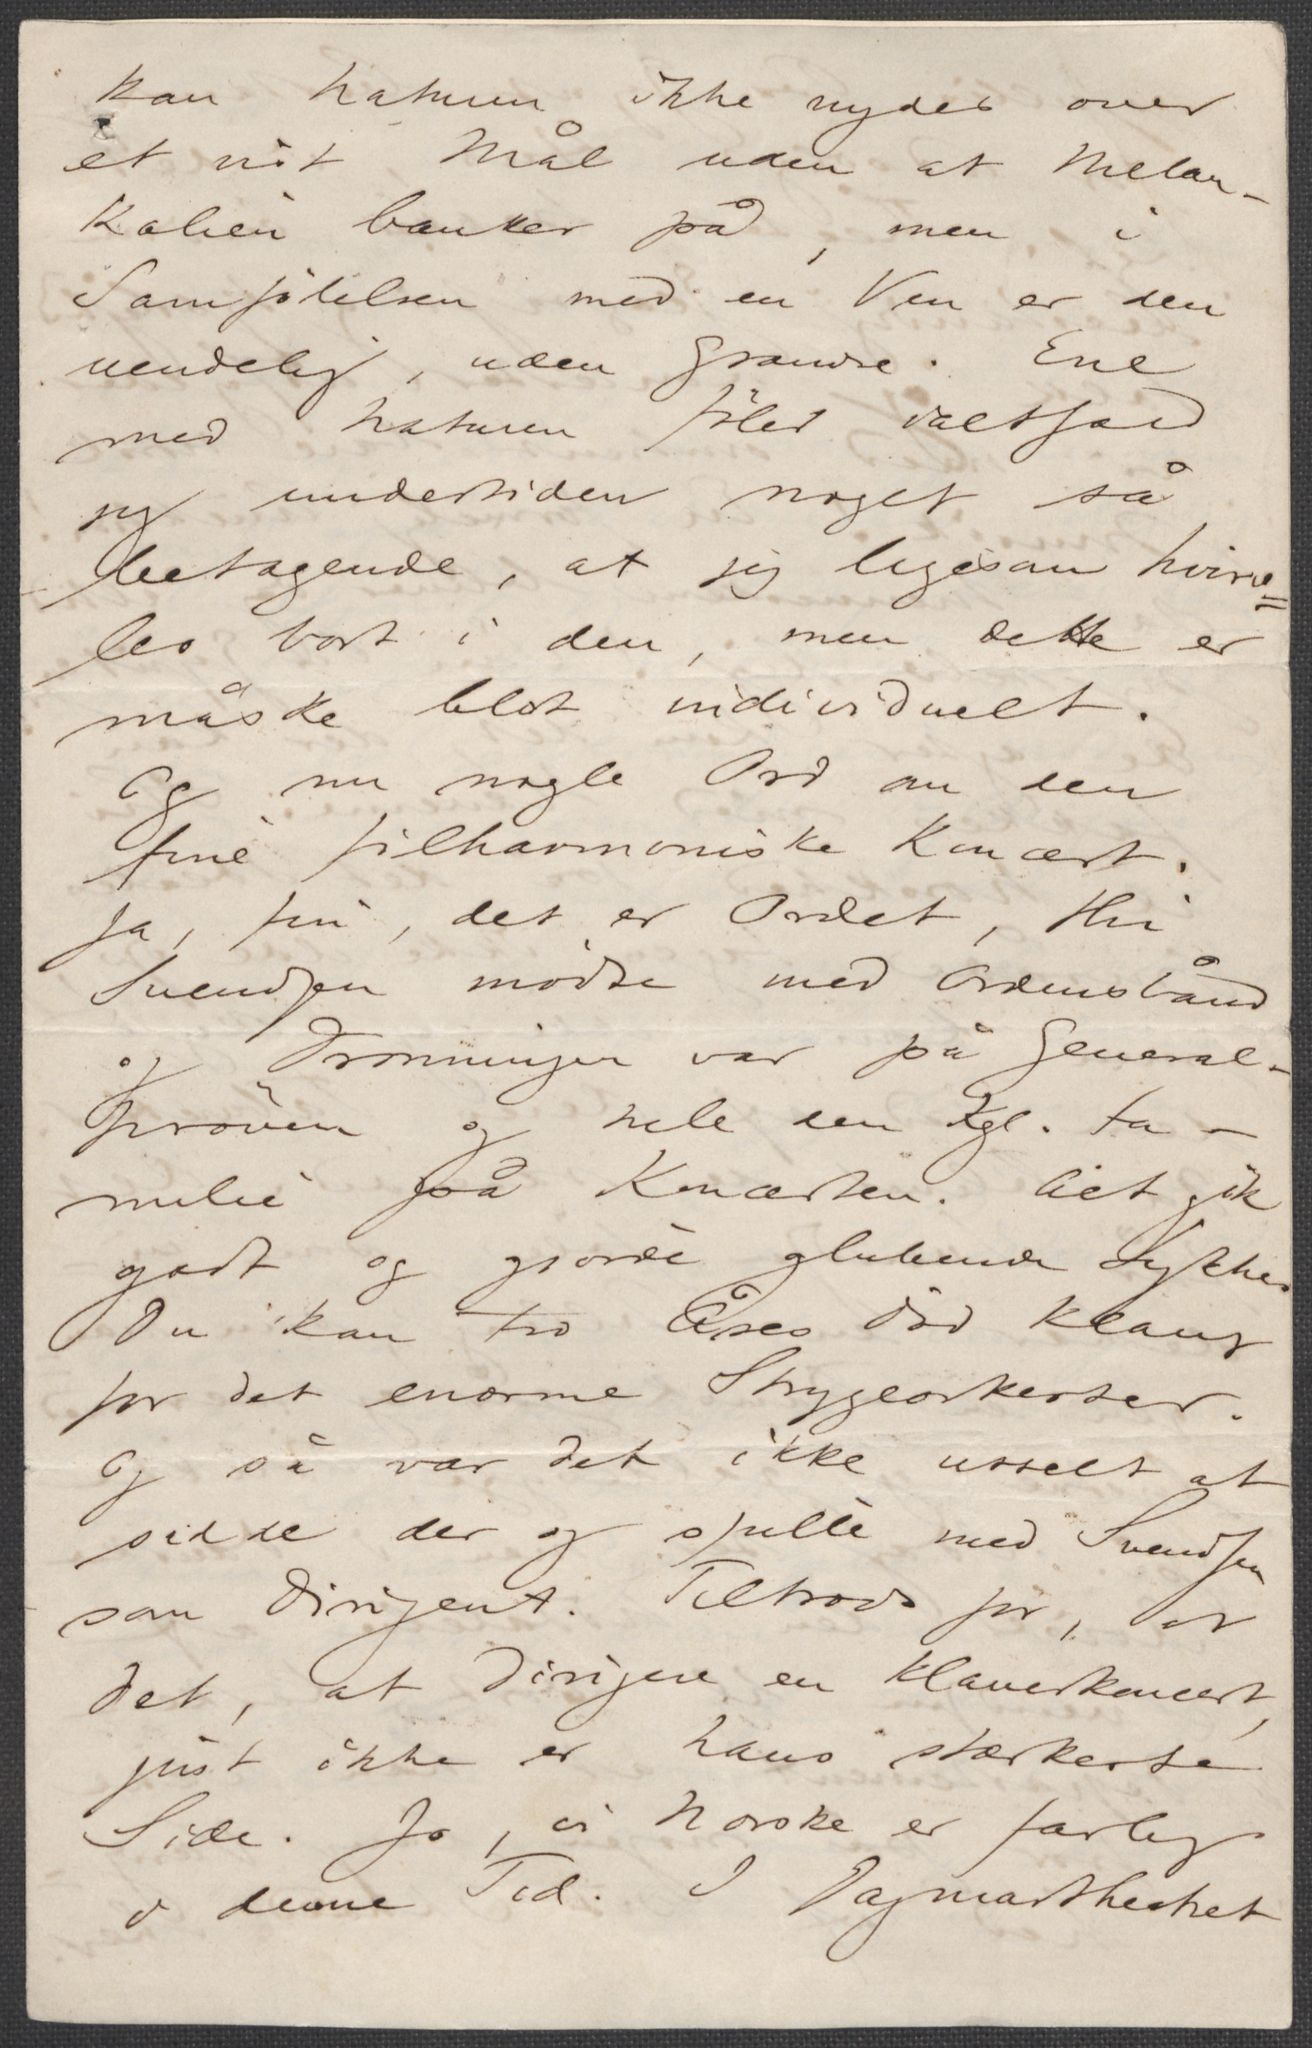 kan Naturen ikke nydes over
et vist Mål uden at Melan-
kolien banker på, men i
Samfölelsen med en Ven er den
uendelig, uden Grændse. Ene
med Naturen föler ialtfald
jeg undertiden noget så
betagende, at jeg ligesom hvirv=
les bort i den, men dette er
måske blot individuelt.
Og nu nogle Ord om den
fine filharmoniske Koncert.
Ja, fin, det er Ordet, thi
Svendsen mödte med Ordensbånd
og Dronningen var på General-
pröven og hele den Kgl. Fa-
milie på Koncerten. Det gik
godt og gjorde glubende Lykke.
Du kan tro Åses Död klang
for det enorme Strygeorkester.
Og så var det ikke usselt at
sidde der og spille med Svendsen
som Dirigent. Tiltrods for, at
det, at dirigere en Klaverkoncert,
just ikke er hans stærkeste
Side. Jo, vi Norske er farlig
i denne Tid. I Dagmartheatret